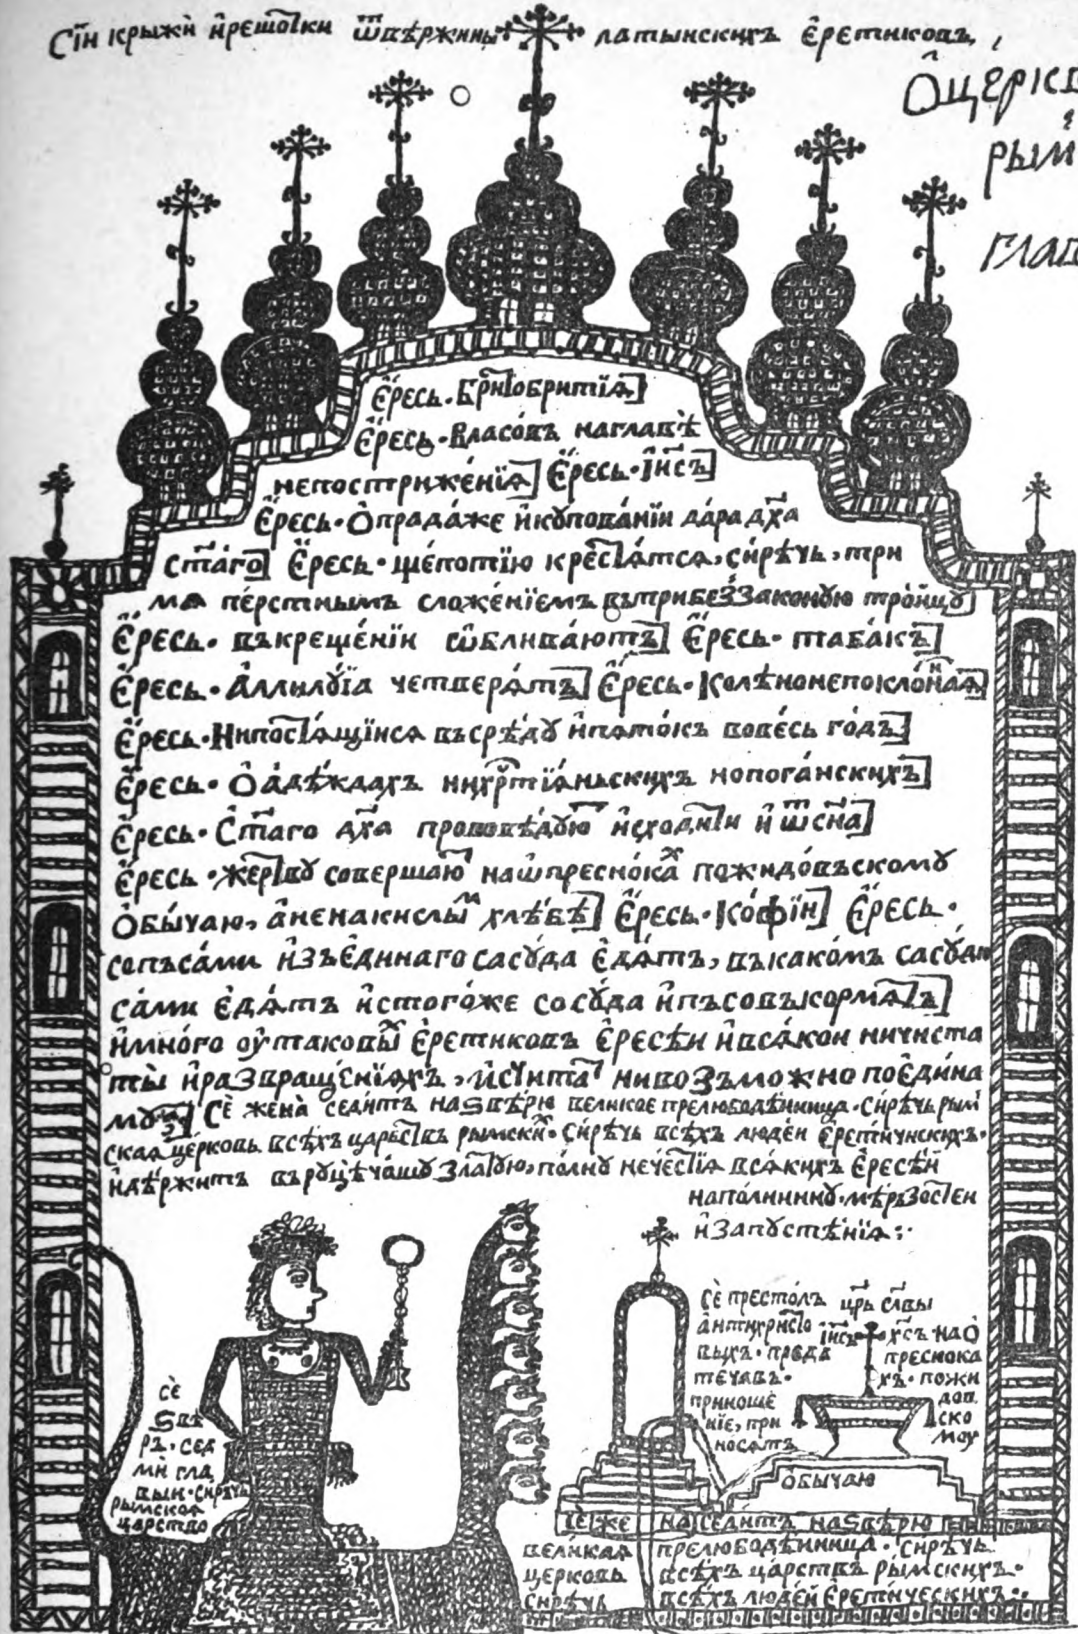 Сїи крыжи и решотки ѿвержины латынскихъ еретиковъ,
О церкв
рым
глав
Ересь. Брадобритїѧ]
Ересь. Власовъ на главѣ
непострижениѧ] Ересь. Іисъ]
Ересь. О прадаже и кꙋпованїи дара дх҃а
ст҃аго] Ересь. щепотїю крестѧтсѧ, сирѣчь, три
мѧ перстнымъ сложенїемъ въ три беззаконꙋю троицꙋ]
Ересь. въ крещенїи ѡбливаютъ] Ересь. табакъ]
Ересь. Аллилꙋїа четверѧтъ] Ересь. Колѣнонепоклоннаѧ]
Ересь. Нипостѧщїисѧ въ срѣдꙋ и пѧтокъ во весь годъ]
Ересь. О адѣждахъ нихр҃тїѧньскихъ но поганскихъ]
Ересь. Ст҃аго дх҃а проповѣдꙋютъ исходѧщи и ѿ сн҃а]
Ересь. жертвꙋ совершаютъ на ѡпреснокахъ по жидовъскомꙋ
обычаю, а не на кислымъ хлѣбѣ] Ересь. Кофїи] Ересь.
со пъсами изъ единаго сасꙋда едѧтъ, въ какомъ сасꙋди
сами едѧтъ и с тогоже сосꙋда и пъсовъ кормѧтъ]
и много оу таковыхъ еретиковъ ересѣи и всѧкои ничиста
ты и развращенїѧхъ, исчитать нивозъможно по едина
мꙋ] Се жена седитъ на ѕвѣрю великое прелюбодѣиница. сирѣчь рым
ская церковь всѣхъ царствъ рымскихъ. сирѣчь всѣхъ людеи еретичнскихъ.
и держитъ въ рꙋцѣ чашꙋ златꙋю, полнꙋ нечестїѧ всѧкихъ ересѣи
наполниннꙋ. мѣрзостїеи
и запꙋстѣнїѧ:·
Се
ѕвѣ
ръ, сед
ми гла
выи. сирѣчь
рымская
царство
Се престолъ
антихристо
выхъ. преда
течавъ.
приноше
нїе, при
носѧтъ
цр҃ь сл҃вы
іис҃ъ хс҃ъ на о
преснока
хъ. по жи
дов
ско
моу
обычаю
Се же на седитъ на ѕвѣрю
великая прелюбодѣиница. сирѣчь
церковь всѣхъ царствъ рымскихъ.
сирѣчь всѣхъ людеи еретическихъ:·